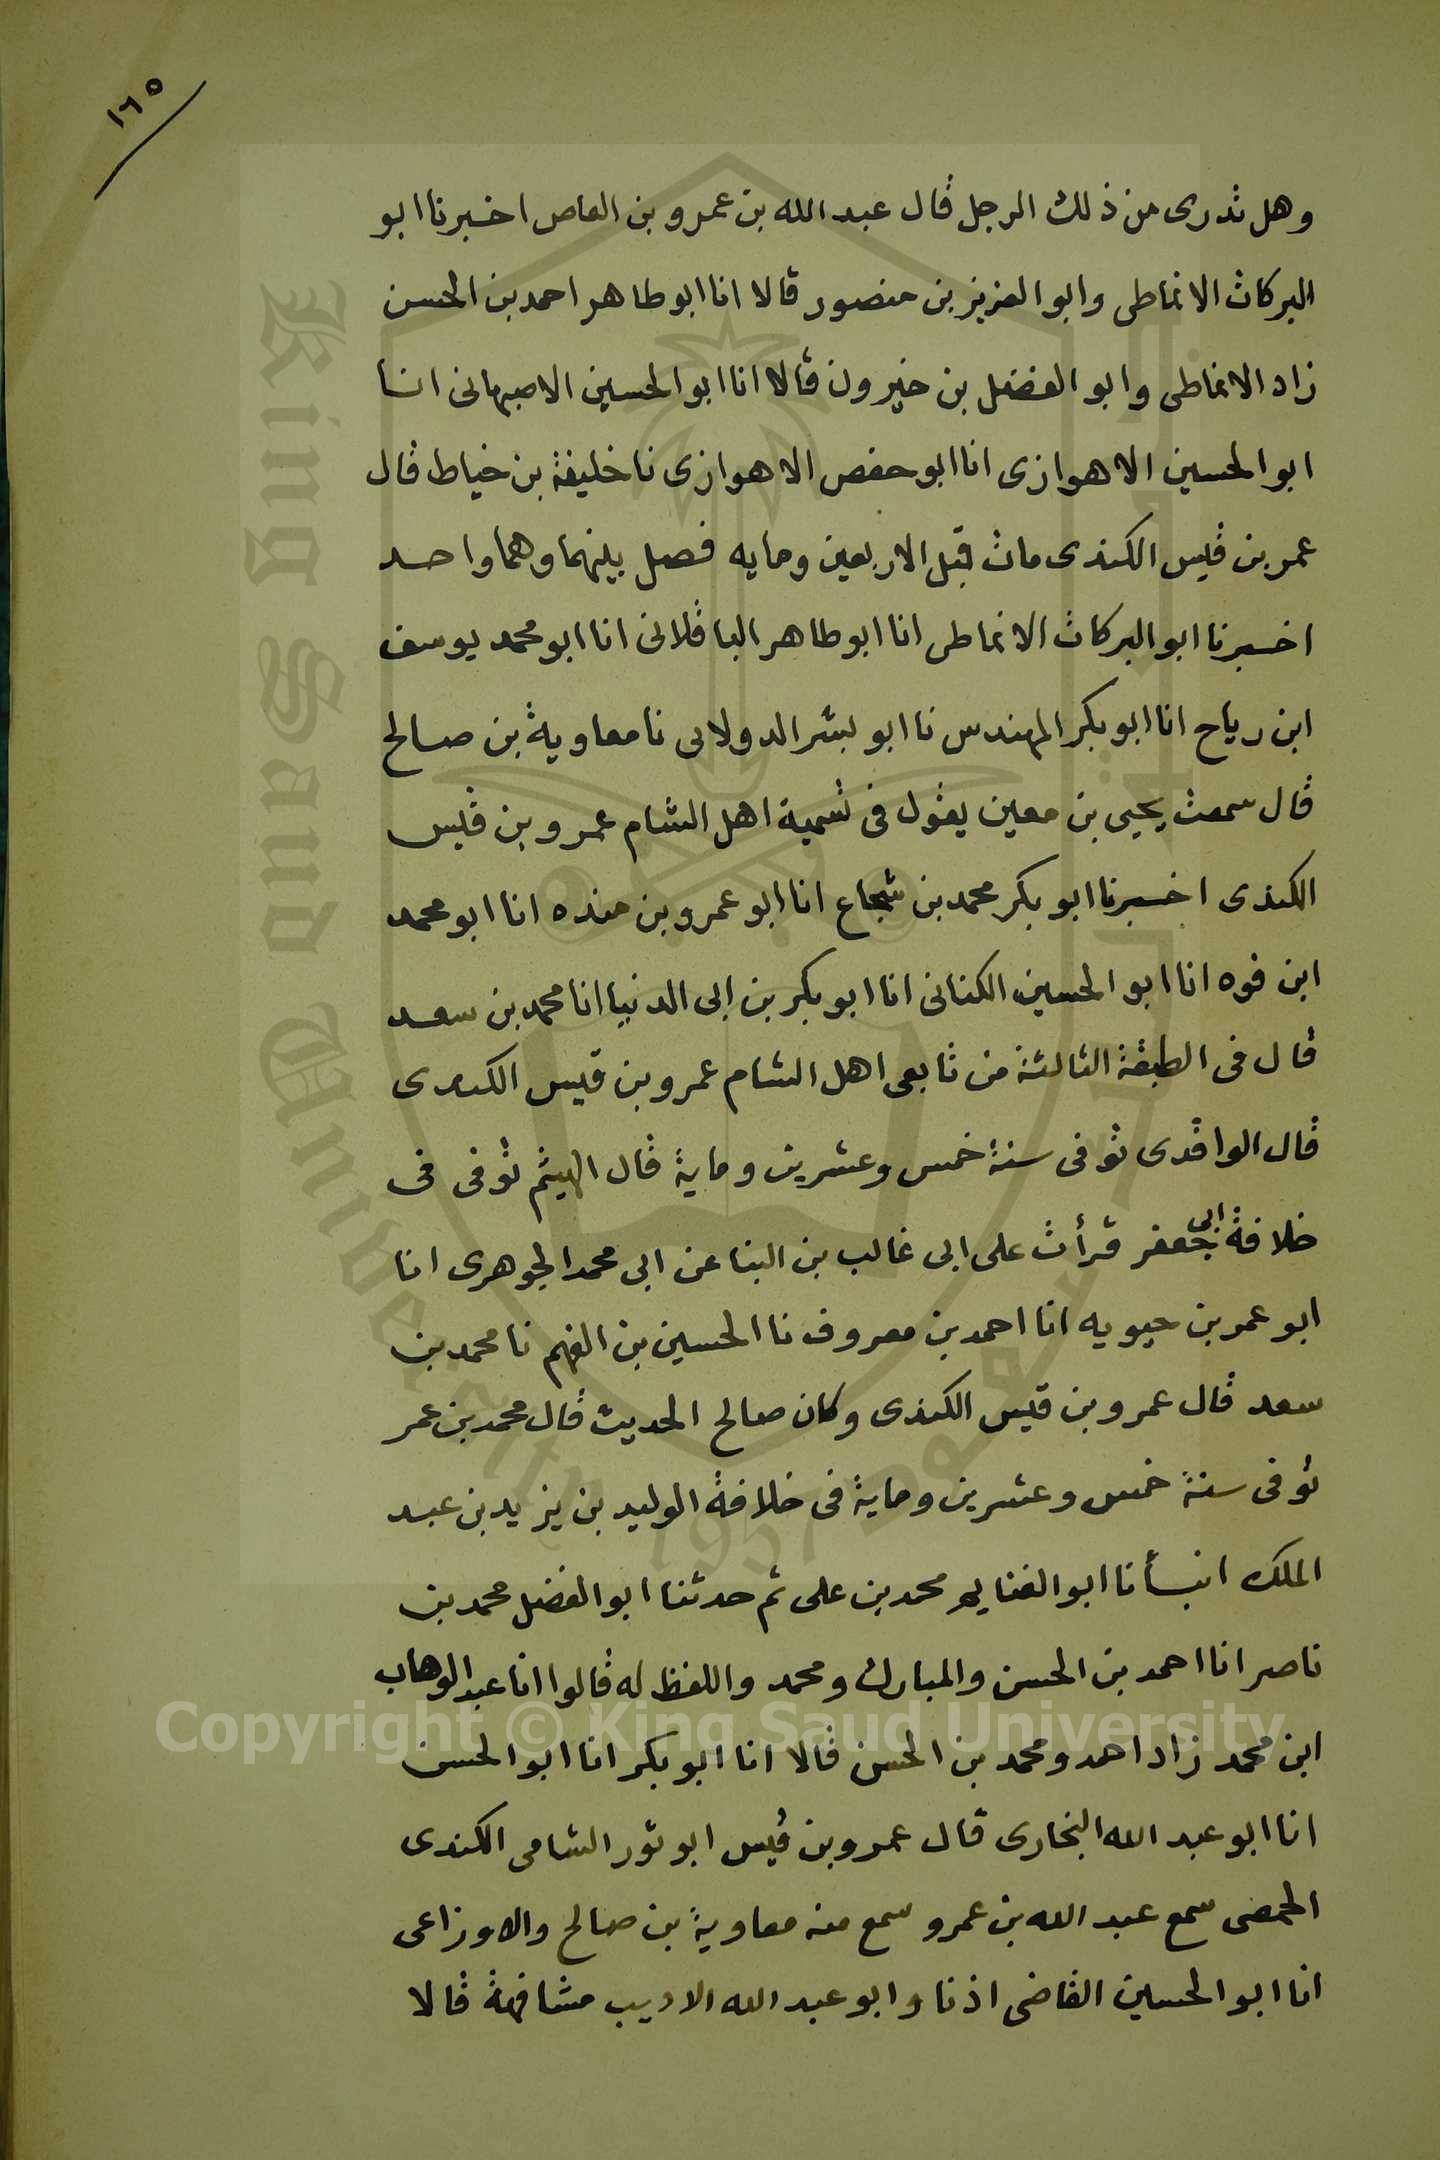 ١٦٥
وهل تدرى من ذلك الرجل قال عبد الله بن عمرو بن العاص اخبرنا ابو
البركات الانماطى وابو العزيز بن منصور قالا انا ابو طاهر احمد بن الحسن
زاد الانماطى وابو الفضل بن خيرون قالا انا ابو الحسين الاصبهانى انا
ابو الحسين الاهوازى انا ابو حفص الاهوازى نا خليفة بن خياط قال
عمر بن قيس الكندى مات قبل الاربعين ومايه فصل بينهما وهما واحد
اخبرنا ابو البركات الانماطى انا ابو طاهر الباقلانى انا ابو محمد يوسف
ابن رباح انا ابو بكر المهندس نا ابو بشر الدولابى نا معاوية بن صالح
قال سمعت يحيى بن معين يقول فى تسمية اهل الشام عمرو بن قيس
الكندى اخبرنا ابو بكر محمد بن شجاع انا ابو عمرو بن منده انا ابو محمد
ابن فوه انا ابو الحسين الكنانى انا ابو بكر بن ابى الدنيا انا محمد بن سعد
قال فى الطبقة الثالثة من تابعى اهل الشام عمرو بن قيس الكندى
قال الواقدى توفى سنة خمس وعشرين وماية قال الهيثم توفى فى
خلافة ابى جعفر قرأت على ابى غالب بن البنا عن ابى محمد الجوهرى انا
ابو عمر بن حيويه انا احمد بن معروف نا الحسين بن الفهم نا محمد بن
سعد قال عمرو بن قيس الكندى وكان صالح الحديث قال محمد بن عمر
توفى سنة خمس وعشرين وماية فى خلافة الوليد بن يزيد بن عبد
الملك انبأنا ابو الغنايم محمد بن على ثم حدثنا ابو الفضل محمد بن
ناصر انا احمد بن الحسن والمبارك ومحمد واللفظ له قالوا انا عبد الوهاب
ابن محمد زاد احمد ومحمد بن الحسن قالا انا ابو بكر انا ابو الحسن
انا ابو عبد الله البخارى قال عمرو بن قيس ابو ثور الشامى الكندى
الحمصى سمع عبد الله بن عمرو سمع منه معاوية بن صالح والاوزاعى
انا ابو الحسين القاضى اذنا وابو عبد الله الاديب مشافهة قالا
King Saud University
1957
Copyright © King Saud University